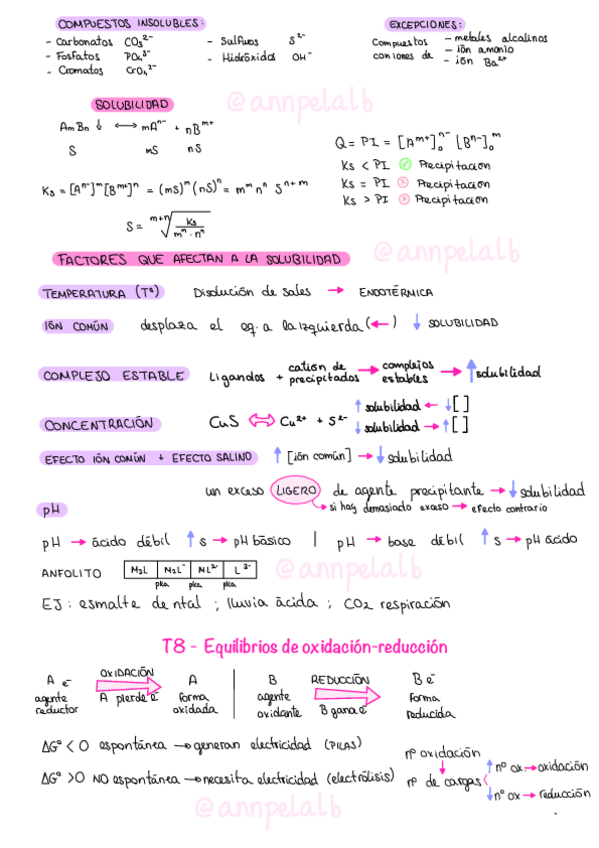 COMPUESTOS INSOLUBLES:
- Carbonatos CO₃²⁻
- Fosfatos PO₄³⁻
- Cromatos CrO₄²⁻
- Sulfuros S²⁻
- Hidróxidos OH⁻
EXCEPCIONES:
Compuestos con iones de
- metales alcalinos
- ión amonio
- ión Ba²⁺
@annpelalb
SOLUBILIDAD
AmBn ↓ ⟷ mAⁿ⁻ + nBᵐ⁺
S mS nS
Ks = [Aⁿ⁻]ᵐ [Bᵐ⁺]ⁿ = (mS)ᵐ (nS)ⁿ = mᵐ nⁿ Sⁿ⁺ᵐ
S = ᵐ⁺ⁿ√(Ks / mᵐ · nⁿ)
Q = PI = [Aᵐ⁺]₀ⁿ⁻ [Bⁿ⁻]₀ᵐ
Ks < PI ✓ Precipitación
Ks = PI ✗ Precipitación
Ks > PI ✗ Precipitación
@annpelalb
FACTORES QUE AFECTAN A LA SOLUBILIDAD
TEMPERATURA (Tª) Disolución de sales → ENDOTÉRMICA
IÓN COMÚN desplaza el eq. a la izquierda (←) ↓ SOLUBILIDAD
COMPLEJO ESTABLE Ligandos + catión de precipitados → complejos estables → ↑ solubilidad
CONCENTRACIÓN CuS ⟺ Cu²⁺ + S²⁻
↑ solubilidad ← ↓ [ ]
↓ solubilidad → ↑ [ ]
EFECTO IÓN COMÚN + EFECTO SALINO ↑ [ión común] → ↓ solubilidad
un exceso LIGERO de agente precipitante → ↓ solubilidad
si hay demasiado exceso → efecto contrario
pH
pH → ácido débil ↑ s → pH básico | pH → base débil ↑ s → pH ácido
ANFOLITO H₃L H₂L⁻ HL²⁻ L³⁻
pka pka pka
@annpelalb
EJ: esmalte dental ; lluvia ácida ; CO₂ respiración
T8 - Equilibrios de oxidación-reducción
A e⁻ OXIDACIÓN A | B REDUCCIÓN B e⁻
agente reductor A pierde e⁻ forma oxidada | agente oxidante B gana e⁻ forma reducida
ΔGº < 0 espontánea → generan electricidad (PILAS)
ΔGº > 0 NO espontánea → necesita electricidad (electrólisis)
nº oxidación
↓
nº de cargas
↑ nº ox → oxidación
↓ nº ox → reducción
@annpelalb